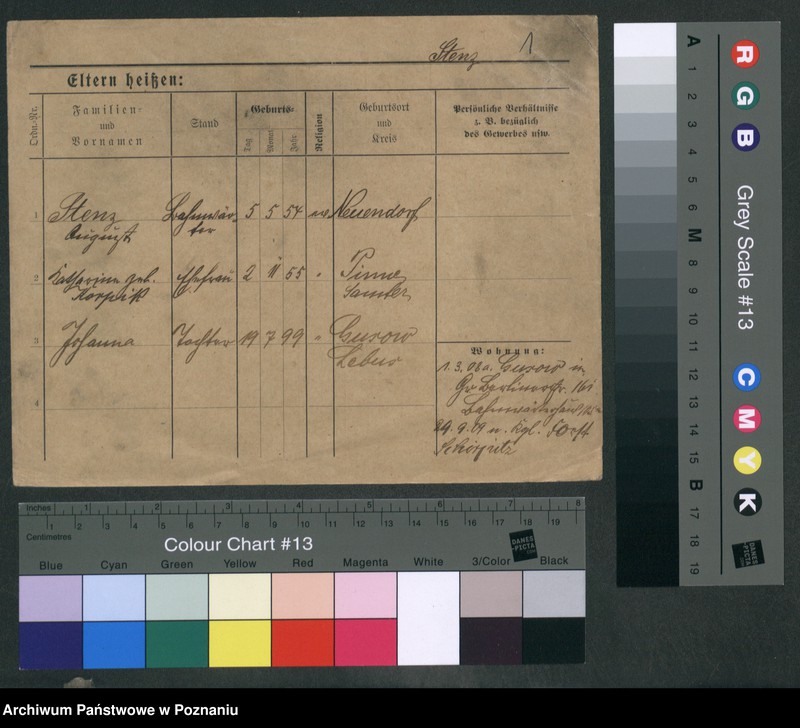 Stenz 1
Eltern heißen:
Ordn.-Nr.
Familien-
und
Vornamen
Stand
Geburts-
Tag
Monat
Jahr
Religion
Geburtsort
und
Kreis
Persönliche Verhältnisse
z. B. bezüglich
des Gewerbes usw.
1 Stenz Bahnwär- 5 5 54 ev Neuendorf
August ter
2 Katharina geb. Ehefrau 2 11 55 " Pinne
Samter
3 Johanna Tochter 19 7 99 " Gusow
Lebus
4
Wohnung:
1. 3. 06 a. Gusow in
Gr. Berlinerstr. 161
29. 9. 09 n. Kgl. Forst
Schirpitz
inches 1 2 3 4 5 6 7 8
1 2 3 4 5 6 7 8 9 10 11 12 13 14 15 16 17 18 19
Centimetres
Colour Chart #13
Blue Cyan Green Yellow Red Magenta White 3/Color Black
DANES-PICTA
A 1 2 3 4 5 6 M 8 9 10 11 12 13 14 15 B 17 18 19
R G B
Grey Scale #13
C M Y K
DANES-PICTA
Archiwum Państwowe w Poznaniu